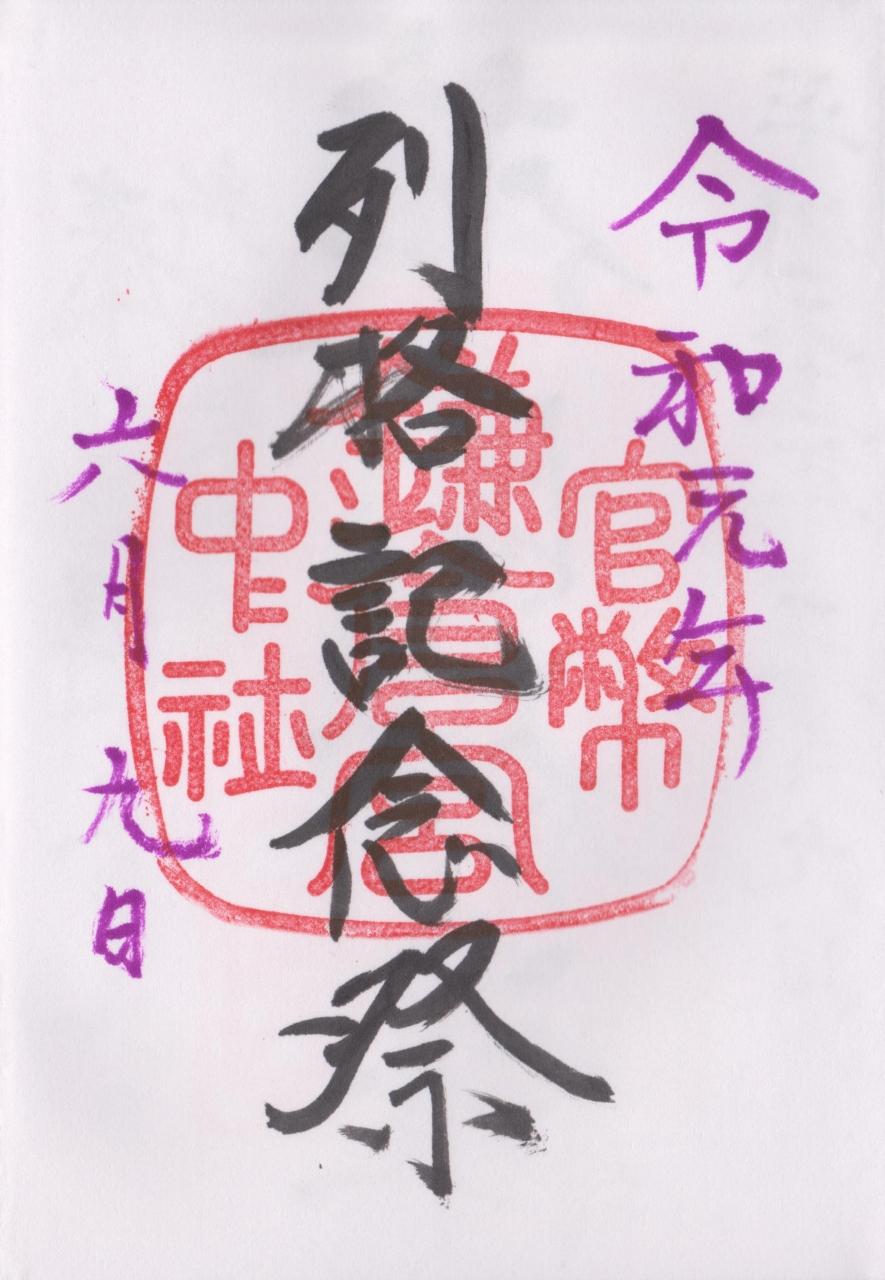 令和元年
列格記念祭
六月九日
官幣
鎌倉宮
中社